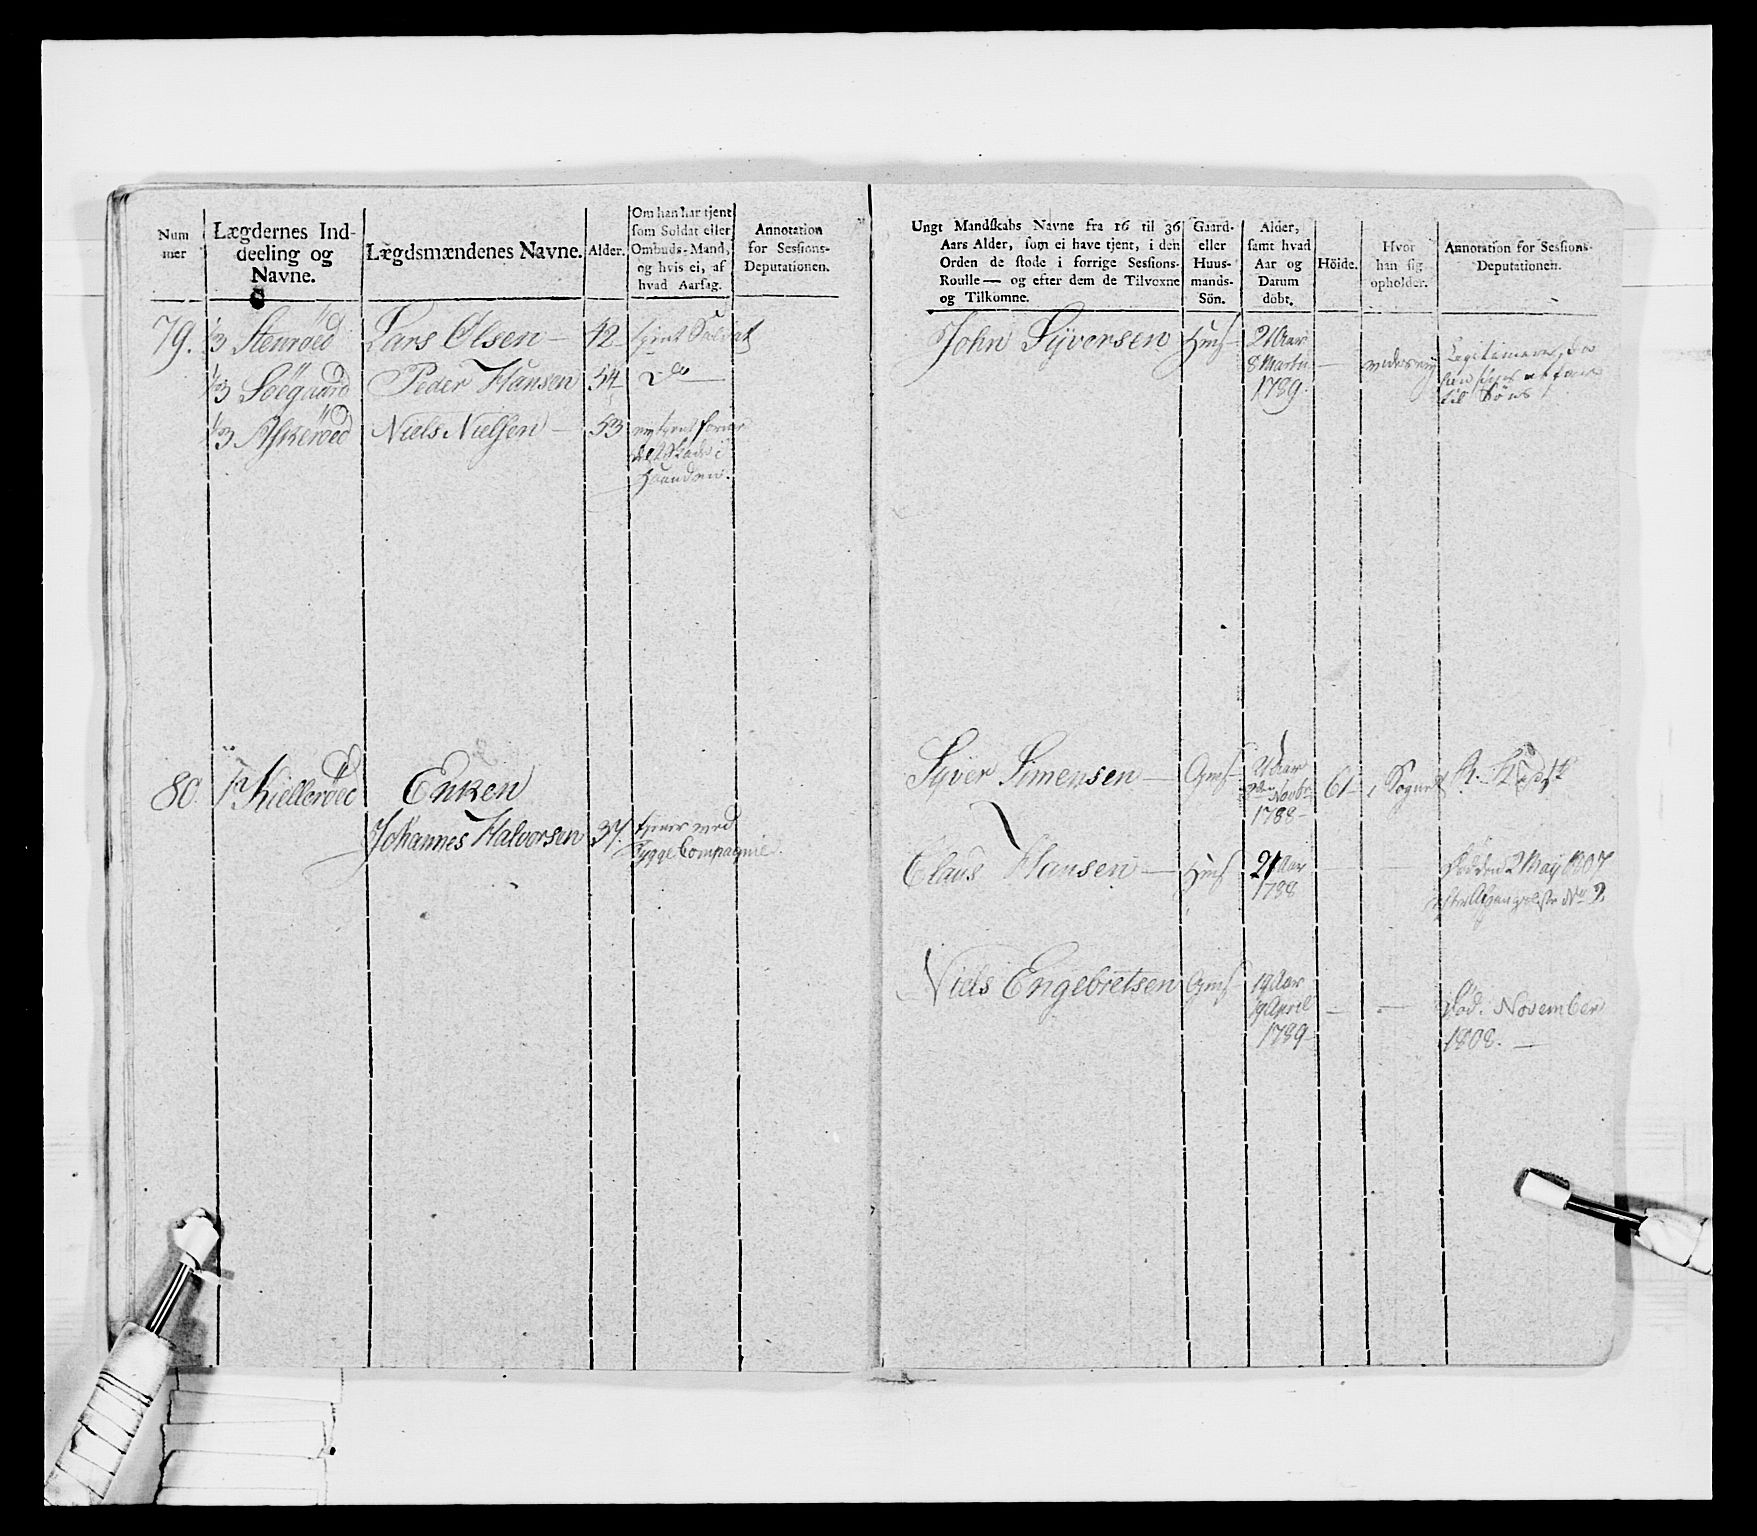 Num
mer
Lægdernes Ind-
deeling og
Navne.
Lægdsmændenes Navne.
Alder.
Om han har tjent
som Soldat eller
Ombuds-Mand,
og hvis ei, af
hvad Aarsag.
Annotation
for Sessions-
Deputationen.
79. 1/3 Stenröed Lars Olsen — 42 — tjent Soldat
1/3 Soegaard Peder Hansen 54 — do —
1/3 Askeröed Niels Nielsen — 53
Haanden.
80. 1/1 Kielleröed Enken
Johannes Halvorsen 37. tjener ved
Bygge Compagnie.
Ungt Mandskabs Navne fra 16 til 36
Aars Alder, som ei have tjent, i den
Orden de stode i forrige Sessions-
Roulle — og efter dem de Tilvoxne
og Tilkomne.
Gaard-
eller
Huus-
mands-
Sön.
Alder,
samt hvad
Aar og
Datum
döbt.
Höide.
Hvor
han sig
opholder.
Annotation for Sessions-
Deputationen.
John Syversen Hms — 21 Aar
8 Martii —
1789.
til Söes
Syver Simensen — Gms — 21 Aar
Novbr 61 — i Sognet
1788 —
Claus Hansen — Hms 21 Aar — — Död den 2 May 1807
1788 efter Afgangsliste No 2
Niels Engebretsen Gms 19 Aar
19 April — — Död. November
1789 — 1808. —